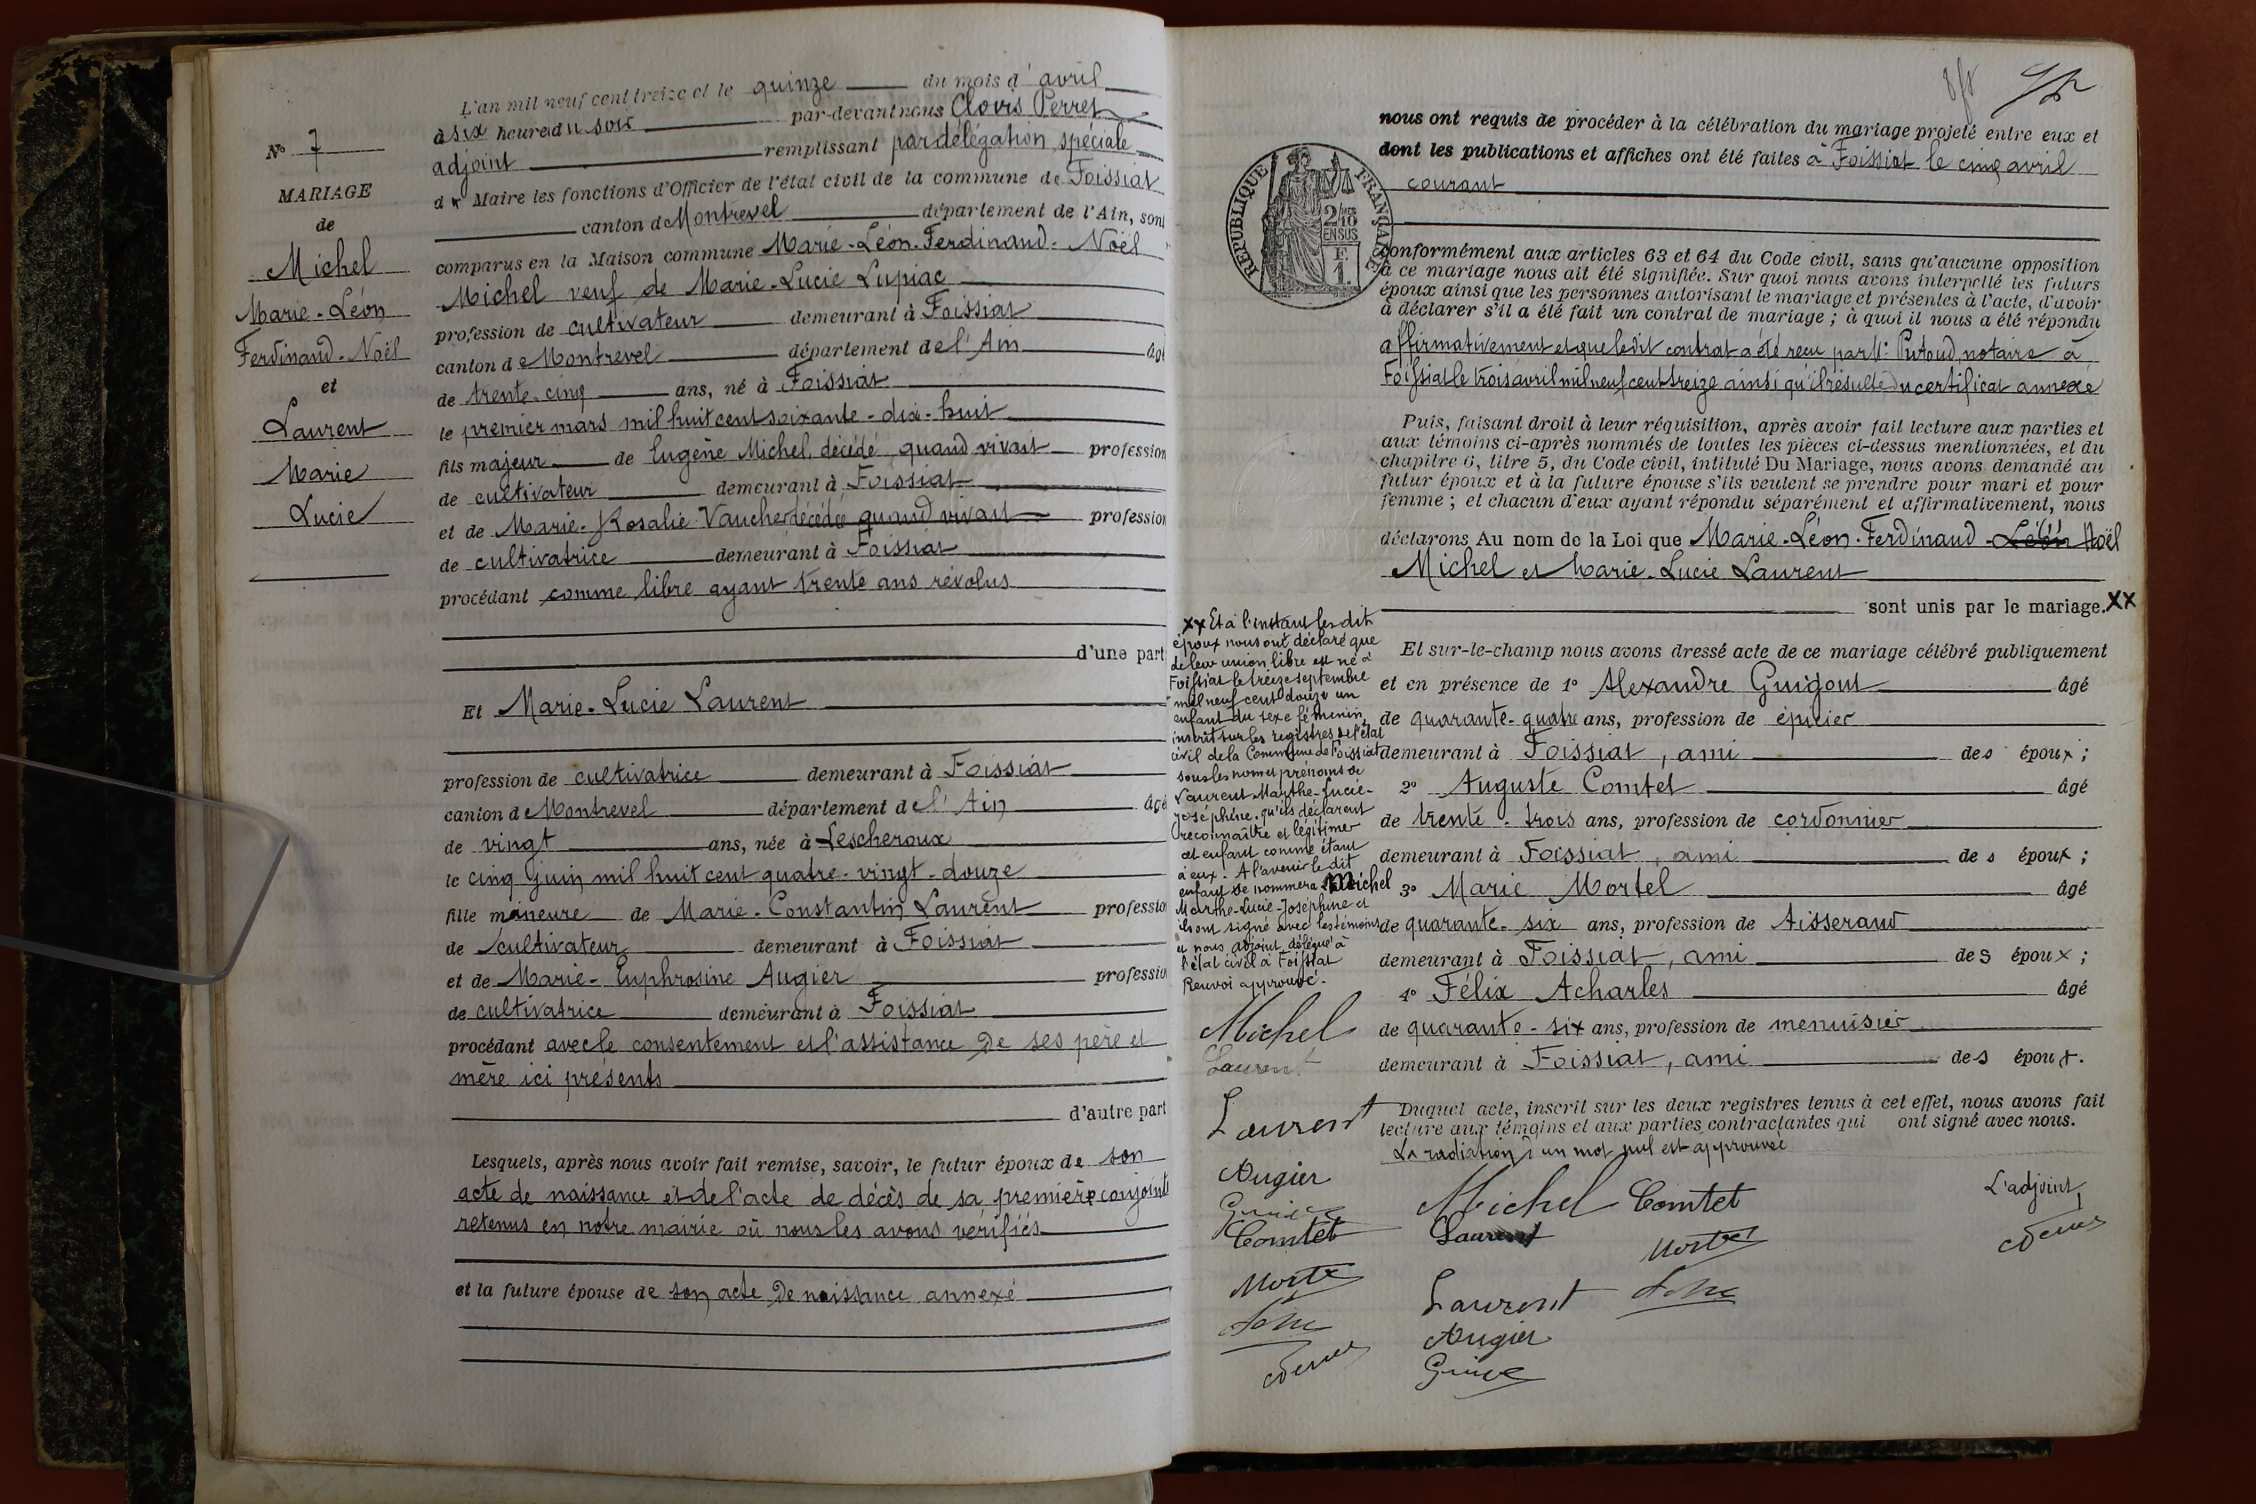 N° 7
MARIAGE
de
Michel
Marie-Léon
Ferdinand-Noël
et
Laurent
Marie
Lucie
L'an mil neuf cent treize et le quinze du mois d'avril
à six heures du soir par-devant nous Clovis Perret
adjoint remplissant par délégation spéciale
du Maire les fonctions d'Officier de l'état civil de la commune de Foissiat
canton de Montrevel département de l'Ain, sont
comparus en la Maison commune Marie-Léon-Ferdinand-Noël
Michel veuf de Marie-Lucie Lupiac
profession de cultivateur demeurant à Foissiat
canton de Montrevel département de l'Ain âgé
de trente-cinq ans, né à Foissiat
le premier mars mil huit cent soixante-dix-huit
fils majeur de Eugène Michel, décédé quand vivait profession
de cultivateur demeurant à Foissiat
et de Marie-Rosalie Vaucher décédée quand vivait profession
de cultivatrice demeurant à Foissiat
procédant comme libre ayant trente ans révolus
d'une part
Et Marie-Lucie Laurent
profession de cultivatrice demeurant à Foissiat
canton de Montrevel département de l'Ain âgé
de vingt ans, née à Lescheroux
le cinq juin mil huit cent quatre-vingt-douze
fille mineure de Marie-Constantin Laurent profession
de cultivateur demeurant à Foissiat
et de Marie-Euphrosine Augier profession
de cultivatrice demeurant à Foissiat
procédant avec le consentement et l'assistance de ses père et
mère ici présents
d'autre part
Lesquels, après nous avoir fait remise, savoir, le futur époux de son
acte de naissance et de l'acte de décès de sa première conjointe
retenus en notre mairie où nous les avons vérifiés
et la future épouse de son acte de naissance annexé
RÉPUBLIQUE FRANÇAISE
2/10 EN SUS
F.
1.
nous ont requis de procéder à la célébration du mariage projeté entre eux et
dont les publications et affiches ont été faites à Foissiat le cinq avril
courant
conformément aux articles 63 et 64 du Code civil, sans qu'aucune opposition
à ce mariage nous ait été signifiée. Sur quoi nous avons interpellé les futurs
époux ainsi que les personnes autorisant le mariage et présentes à l'acte, d'avoir
à déclarer s'il a été fait un contrat de mariage ; à quoi il nous a été répondu
affirmativement et que ledit contrat a été reçu par Me Putoud, notaire à
Foissiat le trois avril mil neuf cent treize ainsi qu'il résulte du certificat annexé
Puis, faisant droit à leur réquisition, après avoir fait lecture aux parties et
aux témoins ci-après nommés de toutes les pièces ci-dessus mentionnées, et du
chapitre 6, titre 5, du Code civil, intitulé Du Mariage, nous avons demandé au
futur époux et à la future épouse s'ils veulent se prendre pour mari et pour
femme ; et chacun d'eux ayant répondu séparément et affirmativement, nous
déclarons Au nom de la Loi que Marie-Léon-Ferdinand-Léon Noël
Michel et Marie-Lucie Laurent
sont unis par le mariage. XX
Et sur-le-champ nous avons dressé acte de ce mariage célébré publiquement
et en présence de 1° Alexandre Guigout âgé
de quarante-quatre ans, profession de épicier
demeurant à Foissiat, ami des époux ;
2° Auguste Comtet âgé
de trente-trois ans, profession de cordonnier
demeurant à Foissiat, ami des époux ;
3° Marie Mortel âgé
de quarante-six ans, profession de tisserand
demeurant à Foissiat, ami des époux ;
4° Félix Acharles âgé
de quarante-six ans, profession de menuisier
demeurant à Foissiat, ami des époux.
Duquel acte, inscrit sur les deux registres tenus à cet effet, nous avons fait
lecture aux témoins et aux parties contractantes qui ont signé avec nous.
La radiation d'un mot nul est approuvée
XX Et à l'instant les dits
époux nous ont déclaré que
de leur union libre est né à
Foissiat le treize septembre
mil neuf cent douze un
enfant du sexe féminin,
inscrit sur les registres de l'état
civil de la Commune de Foissiat
sous les nom et prénoms de
Laurent Marthe-Lucie-
Joséphine, qu'ils déclarent
reconnaître et légitimer
cet enfant comme étant
à eux. A l'avenir le dit
enfant se nommera Michel
Marthe-Lucie-Joséphine et
ils ont signé avec les témoins
et nous adjoint délégué à
l'état civil à Foissiat
Renvoi approuvé.
Michel
Laurent
Laurent
Augier
Comtet
Michel Comtet
Laurent
Laurent
Augier
L'adjoint,